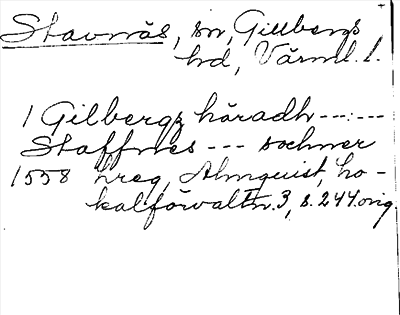 Stavnäs, sn, Gillbergs
hd, Värml. l.
I Gilbergz häradh --- : ---
Staffnes --- sochner
1558 hreg, Almquist, Lo-
kalförvaltn. 3, s. 244. orig.